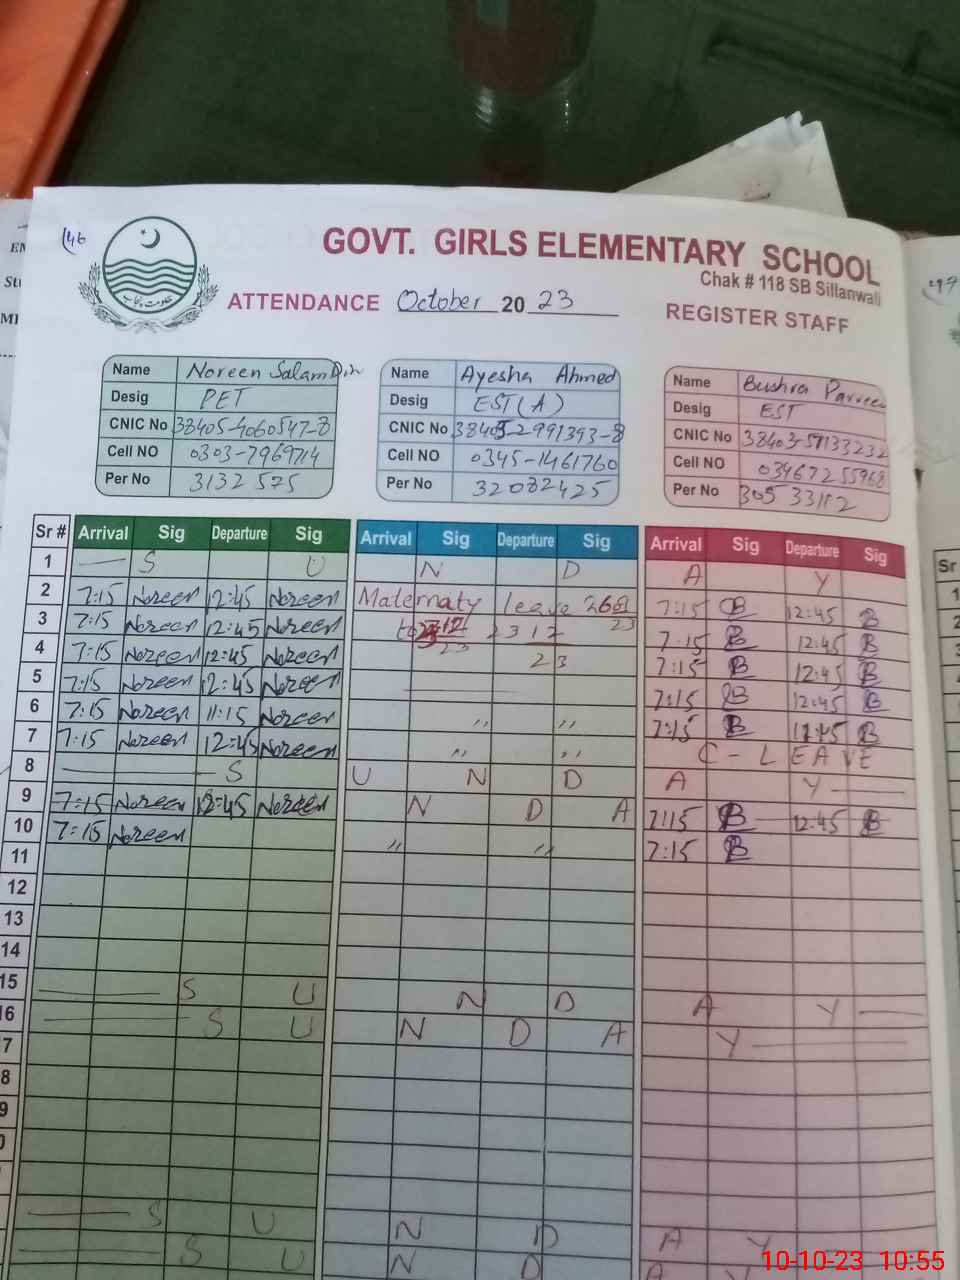 146
GOVT. GIRLS ELEMENTARY SCHOOL
Chak # 118 SB Sillanwali
ATTENDANCE October 20 23
REGISTER STAFF
حکومت پنجاب
Name Noreen Salam Din
Desig PET
CNIC No 38405-4060547-8
Cell NO 0303-7969714
Per No 3132575
Name Ayesha Ahmed
Desig EST (A)
CNIC No 38405-2991393-8
Cell NO 0345-1461760
Per No 32082425
Name Bushra Parveen
Desig EST
CNIC No
Cell NO 03467255968
Per No
Sr # Arrival Sig Departure Sig Arrival Sig Departure Sig Arrival Sig Departure Sig
1 S U N D A Y
2 7:15 Noreen 12:45 Noreen Maternaty leave 7:15 B 12:45 B
3 7:15 Noreen 12:45 Noreen to 23 12 23 7:15 B 12:45 B
4 7:15 Noreen 12:45 Noreen 23 7:15 B 12:45 B
5 7:15 Noreen 12:45 Noreen 7:15 B 12:45 B
6 7:15 Noreen 11:15 Noreen " " 7:15 B B
7 7:15 Noreen 12:45 Noreen " " C - LEAVE
8 S U N D A Y
9 7:15 Noreen 12:45 Noreen N D A 7:15 B 12:45 B
10 7:15 Noreen " " 7:15 B
11
12
13
14
15 S U N D A Y
16 S U N D A Y
7
8
9
0
S U N D A Y
S U N D A Y
147
Sr
10-10-23 10:55